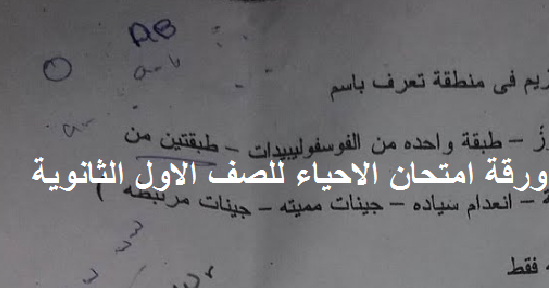 AB
ـزيم فى منطقة تعرف باسم
ـز – طبقة واحده من الفوسفوليبيدات – طبقتين من
ورقة امتحان الاحياء للصف الاول الثانوية
ـة – انعدام سياده – جينات مميته – جينات مرتبطه )
ـه فقط